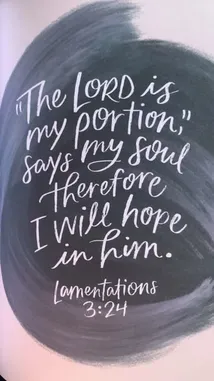 "The LORD is
my portion,"
says my soul
therefore
I will hope
in him.
Lamentations
3:24